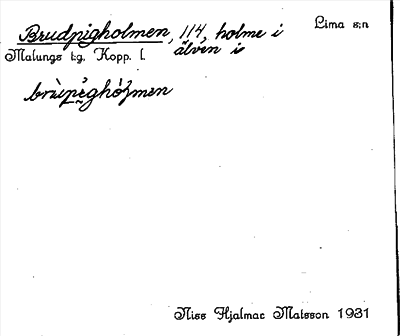 Brudpigholmen, 114, holme i Lima s:n
Malungs t:g. Kopp. l. älven i
Niss Hjalmar Matsson 1931